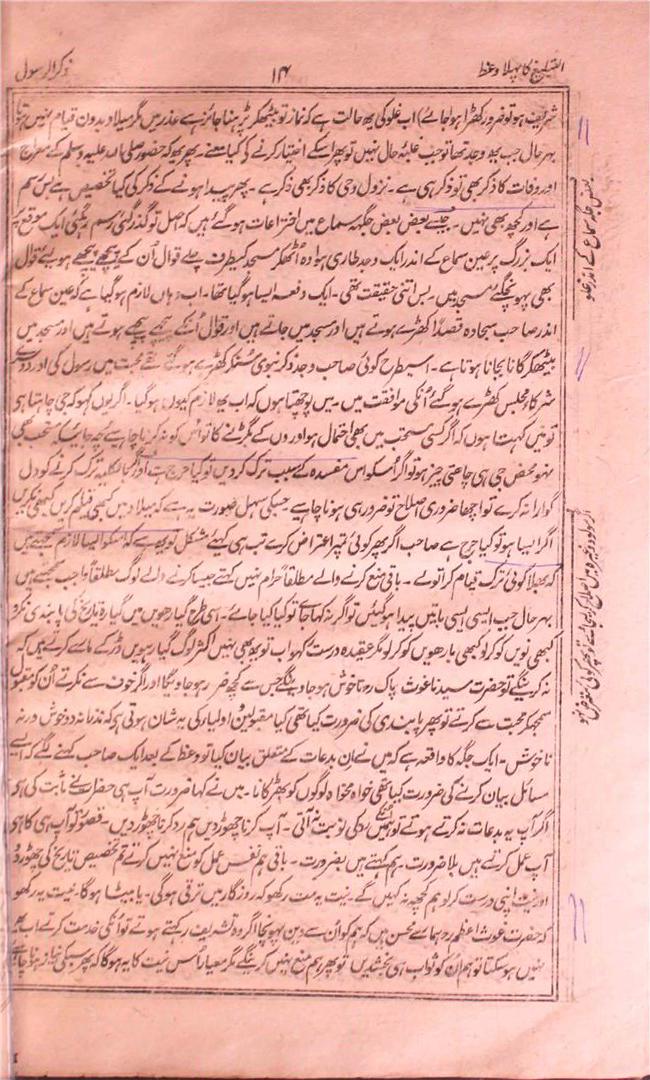 التبلیغ کا پہلا وعظ
۱۴
ذکر الرسول
شریف ہو تو ضرور کھڑا ہوا جائے) اب غلو کی یہ حالت ہے کہ نماز تو بیٹھکر پڑھنا جائز ہے عذر میں مگر میلاد بدون قیام نہیں ہوتا
بہر حال جب وجد تھا تو جب غلبۂ حال نہیں تو پھر اسکے اختیار کرنے کے کیا معنے۔ پھر یہ کہ حضور صلی اللہ علیہ وسلم کے معراج
اور وفات کا ذکر بھی تو ذکر ہی ہے۔ نزول وحی کا ذکر بھی ذکر ہے۔ پھر پیدا ہونے کے ذکر کی کیا تخصیص ہے بس رسم
ہے اور کچھ بھی نہیں۔ جیسے بعض بعض جگہ سماع میں اختراعات ہوگئے ہیں کہ اصل تو گذر گئی رسم رہ گئی ایک موقع پر
ایک بزرگ پر عین سماع کے اندر ایک وجد طاری ہوا وہ اٹھکر مسجد کیطرف چلے قوال اُن کے پیچھے پیچھے ہولیے قوال
بھی پہونچگئے مسجد میں۔ بس اتنی حقیقت تھی۔ ایک دفعہ ایسا ہوگیا تھا۔ اب وہاں لازم ہوگیا ہے کہ عین سماع کے
اندر صاحب سجادہ قصداً کھڑے ہوتے ہیں اور مسجد میں جاتے ہیں اور قوال اُنکے پیچھے پیچھے ہوتے ہیں اور مسجد میں
بیٹھکر گانا بجانا ہوتا ہے۔ اسیطرح کوئی صاحب وجد ذکر نبوی سنکر کھڑے ہوگئے تھے محبت میں رسول کی اور دوسرے
شرکاء مجلس کھڑے ہوگئے اُنکی موافقت میں۔ میں پوچھتا ہوں کہ اب یہ لازم کیوں ہوگیا۔ اگر یوں کہو کہ جی چاہتا ہی
تو میں کہتا ہوں کہ اگر کسی مستحب میں بھی احتمال ہو اوروں کے بگڑنے کا تو اُس کو نہ کرنا چاہئے چہ جائیکہ مستحب بھی
نہو محض جی ہی چاہتی چیز ہو تو اگر اُسکو اس مفسدہ کے سبب ترک کردیں تو کیا حرج ہے اور اگر بالکلیہ ترک کرنے کو دل
گوارا نہ کرے تو اچھا ضروری اصلاح تو ضرور ہی ہونا چاہیے جسکی سہل صورت یہ ہے کہ میلاد میں کبھی قیام کریں کبھی نکریں
اگر ایسا ہو تو کیا حرج ہے صاحب اگر پھر کوئی تمپر اعتراض کرے تب ہی کہئے مشکل تو یہ ہے کہ اسکو ایسا لازم سمجھتے ہیں
کہ بھلا کوئی ترک قیام کرا تو لے۔ باقی منع کرنے والے مطلقاً حرام نہیں کہتے جیسا کرنے والے لوگ مطلقاً واجب سمجھتے ہیں
بہر حال جب ایسی ایسی باتیں پیدا ہوگئیں تو اگر نہ کہا جائے تو کیا کیا جائے۔ اسی طرح گیارھویں میں گیارہ تاریخ کی پابندی نکرو
کبھی نویں کو کرلو کبھی بارھویں کو کرلو مگر عقیدہ درست کہو اب تو یہ بھی نہیں اکثر لوگ گیارہویں ڈر کے مارے کرتے ہیں کہ
نہ کرینگے تو حضرت سیدنا غوث پاک رہ ناخوش ہو جاوینگے جس سے کچھ ضرر ہو جاویگا اور اگر خوف سے نکرتے اُن کو مقبول
سمجھکر محبت سے کرتے تو پھر پابندی کی ضرورت کیا تھی کیا مقبولین و اولیاء کی یہ شان ہوتی ہی کہ نذرانہ دو خوش ورنہ
ناخوش۔ ایک جگہ کا واقعہ ہے کہ میں نے ان بدعات کے متعلق بیان کیا تو وعظ کے بعد ایک صاحب کہنے لگے کہ ایسے
مسائل بیان کرنے کی ضرورت کیا تھی خواہ مخواہ لوگوں کو بھڑکانا۔ میں نے کہا ضرورت آپ ہی حضرات نے ثابت کی ہی
اگر آپ یہ بدعات نہ کرتے ہوتے تو ہمیں منع کی نوبت نہ آتی۔ آپ کرنا چھوڑ دیں ہم رد کرنا چھوڑ دیں۔ قصور تو آپ ہی کا ہی
آپ عمل کرتے ہیں بلا ضرورت۔ ہم کہتے ہیں بضرورت۔ باقی ہم نفس عمل کو منع نہیں کرتے تم تخصیص تاریخ کی چھوڑ دو
اور نیت اپنی درست کرلو ہم کچھ نہ کہیں گے۔ نیت یہ مت رکھو کہ روزگار میں ترقی ہوگی۔ یا بیٹا ہوگا۔ نیت یہ رکھو
کہ حضرت غوث اعظم رہ ہمارے محسن ہیں کہ ہم کو اُن سے دین پہونچا اگر وہ تشریف رکھتے ہوتے تو اُنکی خدمت کرتے اب یہ
نہیں ہو سکتا تو ہم اُن کو ثواب ہی بخشدیں تو پھر ہم منع نہیں کرینگے مگر معیار اُس نیت کا یہ ہوگا کہ پھر سبکی نیاز ہونا چاہئے
بعض جگہ سماع کے اندر غلو